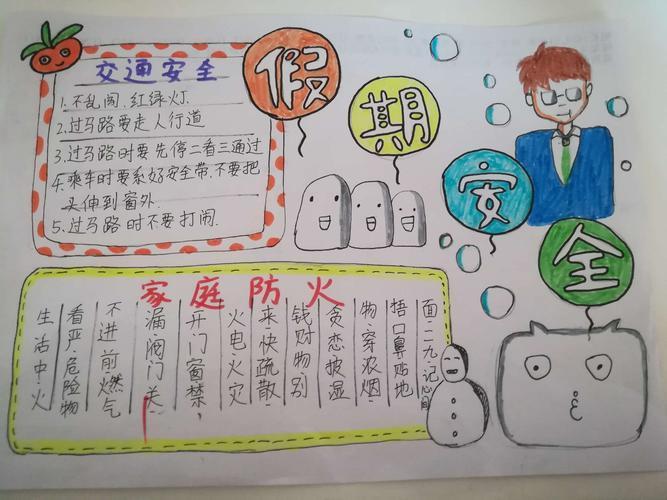 假期安全
交通安全
1.不乱闯.红绿灯.
2.过马路要走人行道
3.过马路时要先停二看三通过
4.乘车时要系好安全带,不要把
头伸到窗外.
5.过马路时不要打闹.
家庭防火
生活中·火
看严·危险物
不进前·燃气
漏·阀门·关·
开门窗禁,
火电·火灾
来·快疏散·
钱财物·别
贪恋·披湿
物·穿浓烟·
捂口鼻贴地
面·一一九·记心间